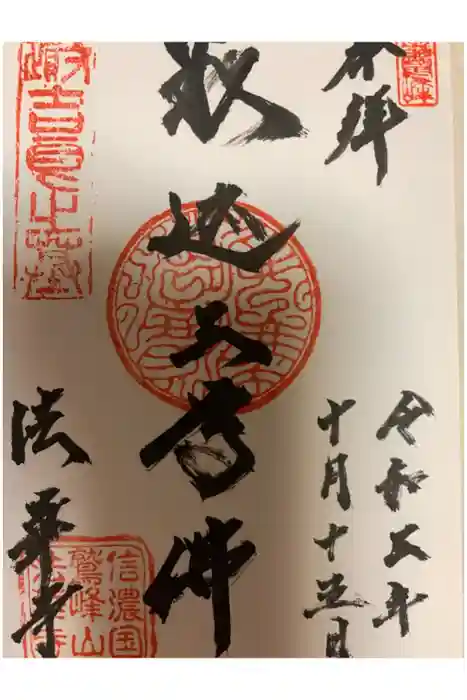 奉拝
令和五年
十月十
日
釈迦三尊佛
法華寺
信濃国
鷲峰山
法華寺